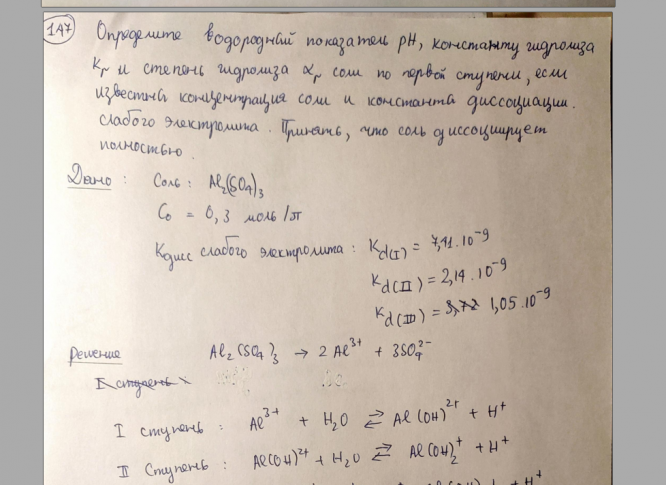 147 Определите водородный показатель pH, константу гидролиза
Kг и степень гидролиза αг соли по первой ступени, если
известна концентрация соли и константа диссоциации
слабого электролита. Принять, что соль диссоциирует
полностью.
Дано: Соль: Al₂(SO₄)₃
C₀ = 0,3 моль/л
Kдисс слабого электролита: Kd(I) = 7,41·10⁻⁹
Kd(II) = 2,14·10⁻⁹
Kd(III) = 1,05·10⁻⁹
Решение Al₂(SO₄)₃ → 2Al³⁺ + 3SO₄²⁻
I ступень
I ступень: Al³⁺ + H₂O ⇄ Al(OH)²⁺ + H⁺
II Ступень: Al(OH)²⁺ + H₂O ⇄ Al(OH)₂⁺ + H⁺